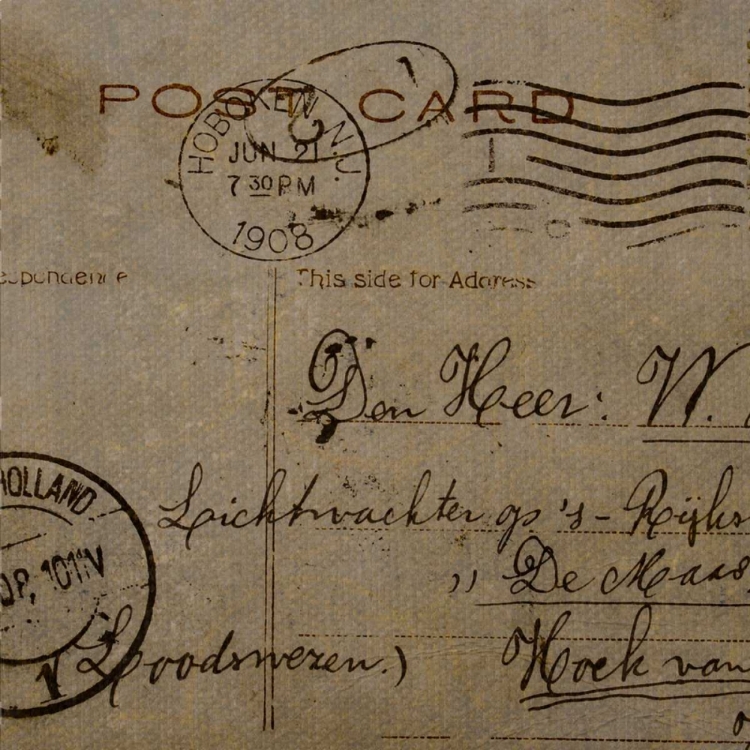 POST CARD
HOBOKEN, N.J.
JUN 21
7 30 PM
1908
This side for Address
Den Heer: W.
HOLLAND
Lichtwachter op 's-Rijks
,, De Maas
Loodswezen.)
Hoek van
1